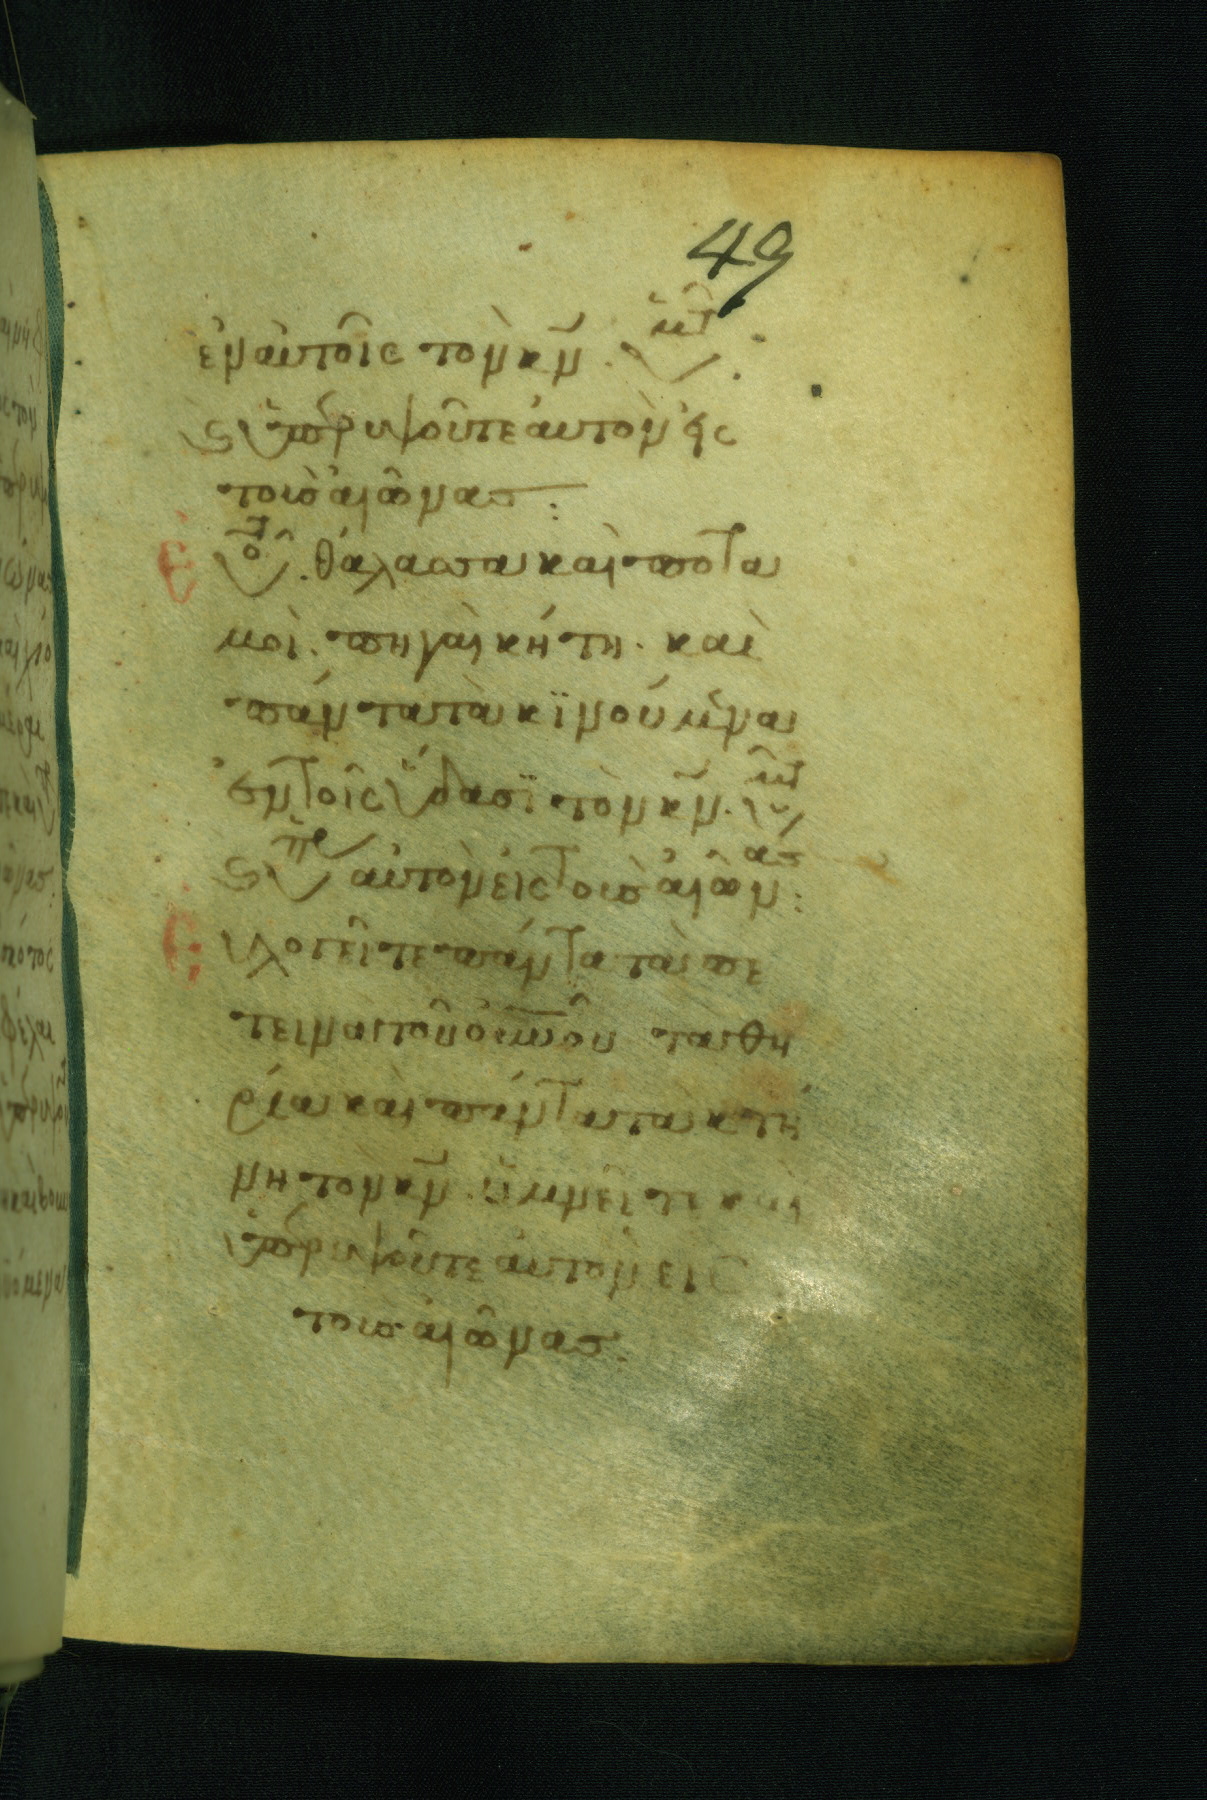 49
ἐν αὐτοῖς τὸν κν̄. ὑμτ̑.
ϛ ὑπερυψοῦτε αὐτὸν εἰς
τους αἰῶνας:
Εὐλογ. θάλασσα καὶ ποτα
μοὶ. πηγαὶ κήτη. καὶ
πάντα τὰ κϊνούμενα
ἐν τοῖς ὕδασϊ τὸν κν̄. ὑμτ̑
ϛ ὑπε αὐτὸν εἰς τους αἰῶνας:
Εὐλογεῖτε πάντα τὰ πε
τεινὰ τοῦ οὐνοῦ τα θη
ρία καὶ πάντα τὰ κτή
νη τὸν κν̄. ὑμνεῖτε κ
ὑπερυψοῦτε αὐτὸν εἰς
τους αἰῶνας.